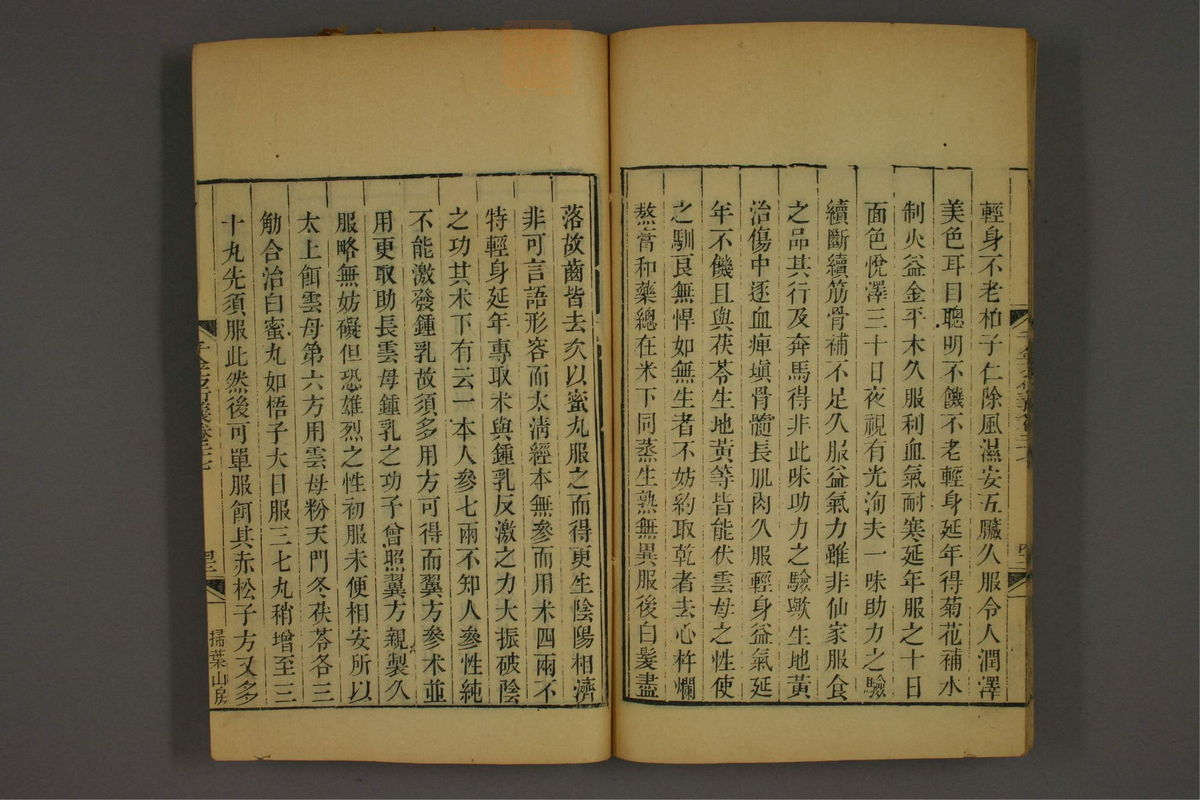 輕身不老柏子仁除風濕安五臟久服令人潤澤
美色耳目聰明不饑不老輕身延年得菊花補水
制火益金平木久服利血氣耐寒延年服之十日
面色悅澤三十日夜視有光洵夫一味助力之驗
續斷續筋骨補不足久服益氣力雖非仙家服食
之品其行及奔馬得非此味功力之驗歟生地黃
治傷中逐血痺塡骨髓長肌肉久服輕身益氣延
年不饑且與茯苓生地黃等皆能伏雲母之性使
之馴良無悍如無生者不妨約取乾者去心杵爛
熬膏和藥總在米下同蒸生熟無異服後白髮盡
落故齒皆去久以蜜丸服之而得更生陰陽相濟
非可言語形容而太淸經本無參而用朮四兩不
特輕身延年專取朮與鍾乳反激之力大振破陰
之功其朮下有云一本人參七兩不知人參性純
不能激發鍾乳故須多用方可得而翼方參朮並
用更取助長雲母鍾乳之功予曾照翼方親製久
服略無妨礙但恐雄烈之性初服未便相安所以
太上餌雲母第六方用雲母粉天門冬茯苓各三
觔合治白蜜丸如梧子大日服三七丸稍增至三
十丸先須服此然後可單服餌其赤松子方又多
掃葉山房